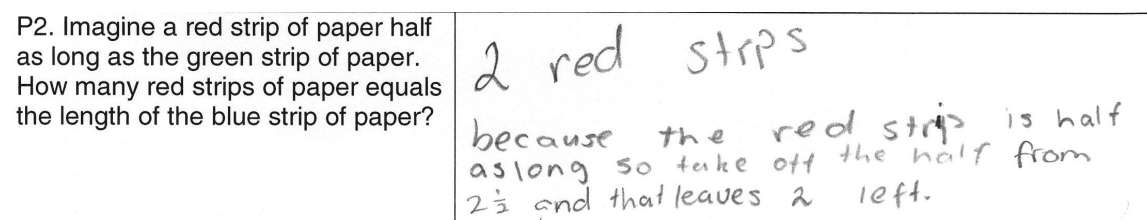 P2. Imagine a red strip of paper half
as long as the green strip of paper.
How many red strips of paper equals
the length of the blue strip of paper?
2 red strps
because the red strip is half
as long so take off the half from
2 1/2 and that leaves 2 left.